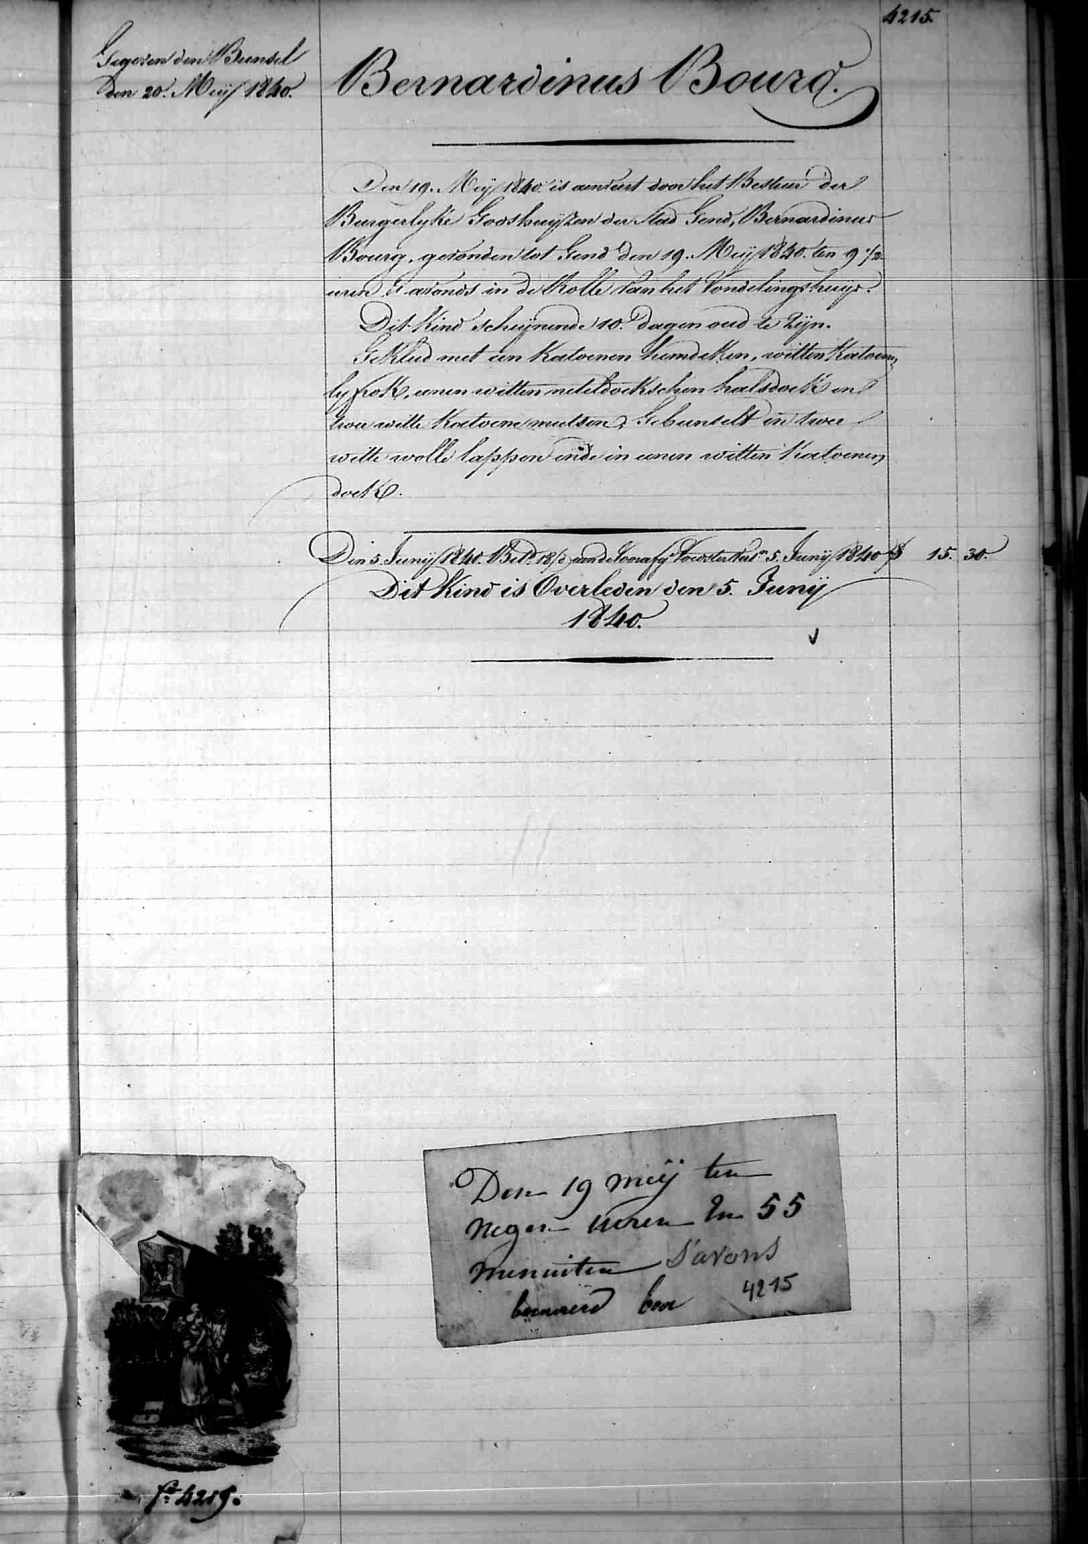 4215.
Gegeven den Bunsel
den 20. Meij 1840.
Bernardinus Bourg.
Den 19. Meij 1840. is aenveert door het Bestier der
Burgerlyke Godshuyzen der Stad Gend, Bernardinus
Bourg, gevonden tot Gend den 19. Meij 1840. ten 9 1/2
uren S'avonds in de Rolle van het Vondelingshuys.
Dit Kind scheynende 10. dagen oud te Zijn.
Gekleed met een Katoenen hemdeken, witten Katoenen
lyfrok, eenen witten neteldoekschen halsdoek en
twee witte Katoene mutsen, Gebunselt in twee
witte wolle lappen ende in eenen witten Katoenen
doek.
Den 5. Junij 1840. 5. Junij 1840 15. 30.
Dit Kind is Overleden den 5. Junij
1840.
Den 19 meij ten
negen uren En 55
menuiten S'avons
4215
f° 4215.